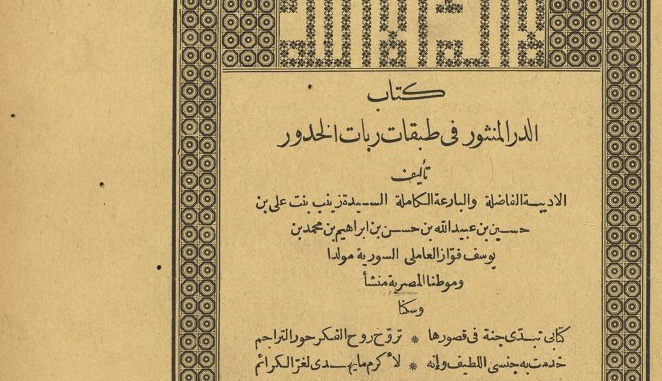 كتاب
الدر المنثور في طبقات ربات الخدور
تأليف
الاديبة الفاضلة والبارعة الكاملة السيدة زينب بنت على بن
حسين بن عبيد الله بن حسن بن ابراهيم بن محمد بن
يوسف فواز العاملى السورية مولدا
وموطنا المصرية منشأ
وسكنا
كتابى تبدّى جنة فى قصورها * تروّح روح الفكر حور التراجم
خدمت به جنسى اللطيف وإنه * لاكرم مايهدى لغرّ الكرائم